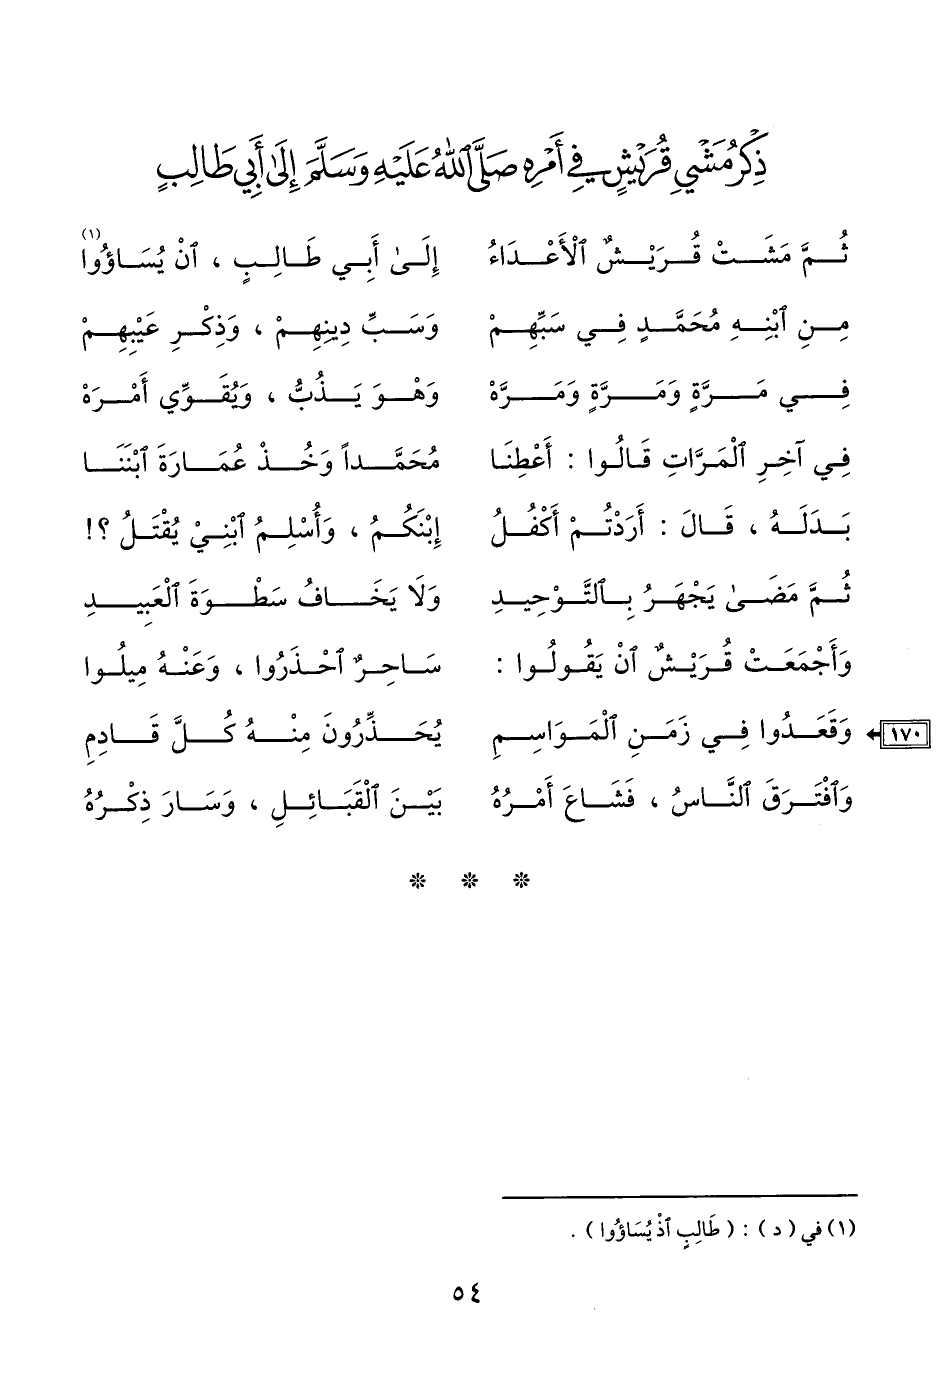 ذِكْرُ مَشْيِ قُرَيْشٍ فِي أَمْرِهِ صَلَّى ٱللهُ عَلَيْهِ وَسَلَّمَ إِلَىٰ أَبِي طَالِبٍ
ثُمَّ مَشَتْ قُرَيْشٌ ٱلْأَعْدَاءُ إِلَىٰ أَبِي طَالِبٍ ، ٱنْ يُسَاؤُوا (١)
مِنِ ٱبْنِهِ مُحَمَّدٍ فِي سَبِّهِمْ وَسَبِّ دِينِهِمْ ، وَذِكْرِ عَيْبِهِمْ
فِي مَرَّةٍ وَمَرَّةٍ وَمَرَّهْ وَهْوَ يَذُبُّ ، وَيُقَوِّي أَمْرَهْ
فِي آخِرِ ٱلْمَرَّاتِ قَالُوا : أَعْطِنَا مُحَمَّداً وَخُذْ عُمَارَةَ ٱبْنَنَا
بَدَلَهُ ، قَالَ : أَرَدْتُمْ أَكْفُلُ إِبْنَكُمُ ، وَأُسْلِمُ ٱبْنِيْ يُقْتَلُ ؟!
ثُمَّ مَضَىٰ يَجْهَرُ بِٱلتَّوْحِيدِ وَلَا يَخَافُ سَطْوَةَ ٱلْعَبِيدِ
وَأَجْمَعَتْ قُرَيْشٌ ٱنْ يَقُولُوا : سَاحِرٌ ٱحْذَرُوا ، وَعَنْهُ مِيلُوا
١٧٠ وَقَعَدُوا فِي زَمَنِ ٱلْمَوَاسِمِ يُحَذِّرُونَ مِنْهُ كُلَّ قَادِمِ
وَٱفْتَرَقَ ٱلنَّاسُ ، فَشَاعَ أَمْرُهُ بَيْنَ ٱلْقَبَائِلِ ، وَسَارَ ذِكْرُهُ
* * *
(١) في ( د ) : ( طَالِبٍ ٱذْ يُسَاؤُوا ) .
٥٤